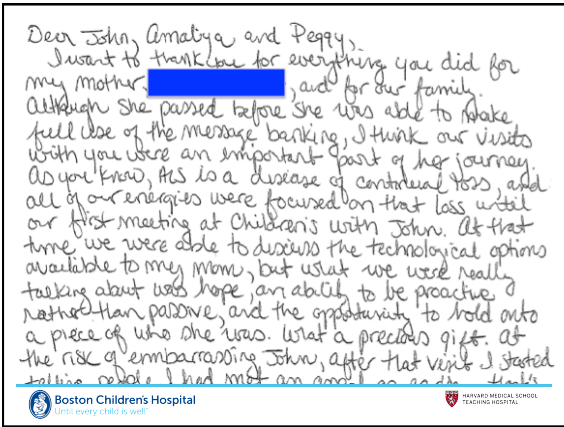 Dear John, Amaliya and Peggy,
I want to thank you for everything you did for
my mother, , and for our family.
Although she passed before she was able to make
full use of the message banking, I think our visits
with you were an important part of her journey.
As you know, ALS is a disease of continual loss, and
all of our energies were focused on that loss until
our first meeting at Children's with John. At that
time we were able to discuss the technological options
available to my mom, but what we were really
talking about was hope, an ability to be proactive
rather than passive, and the opportunity to hold onto
a piece of who she was. What a precious gift. At
the risk of embarrassing John, after that visit I started
talking people I had met an angel
Boston Children's Hospital
Until every child is well™
HARVARD MEDICAL SCHOOL
TEACHING HOSPITAL